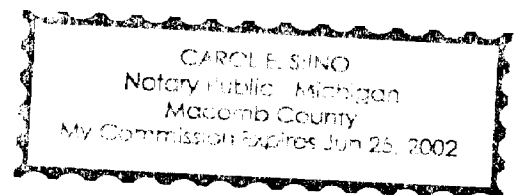 CAROL E. STINO
Notary Public Michigan
Macomb County
My Commission Expires Jun 25, 2002